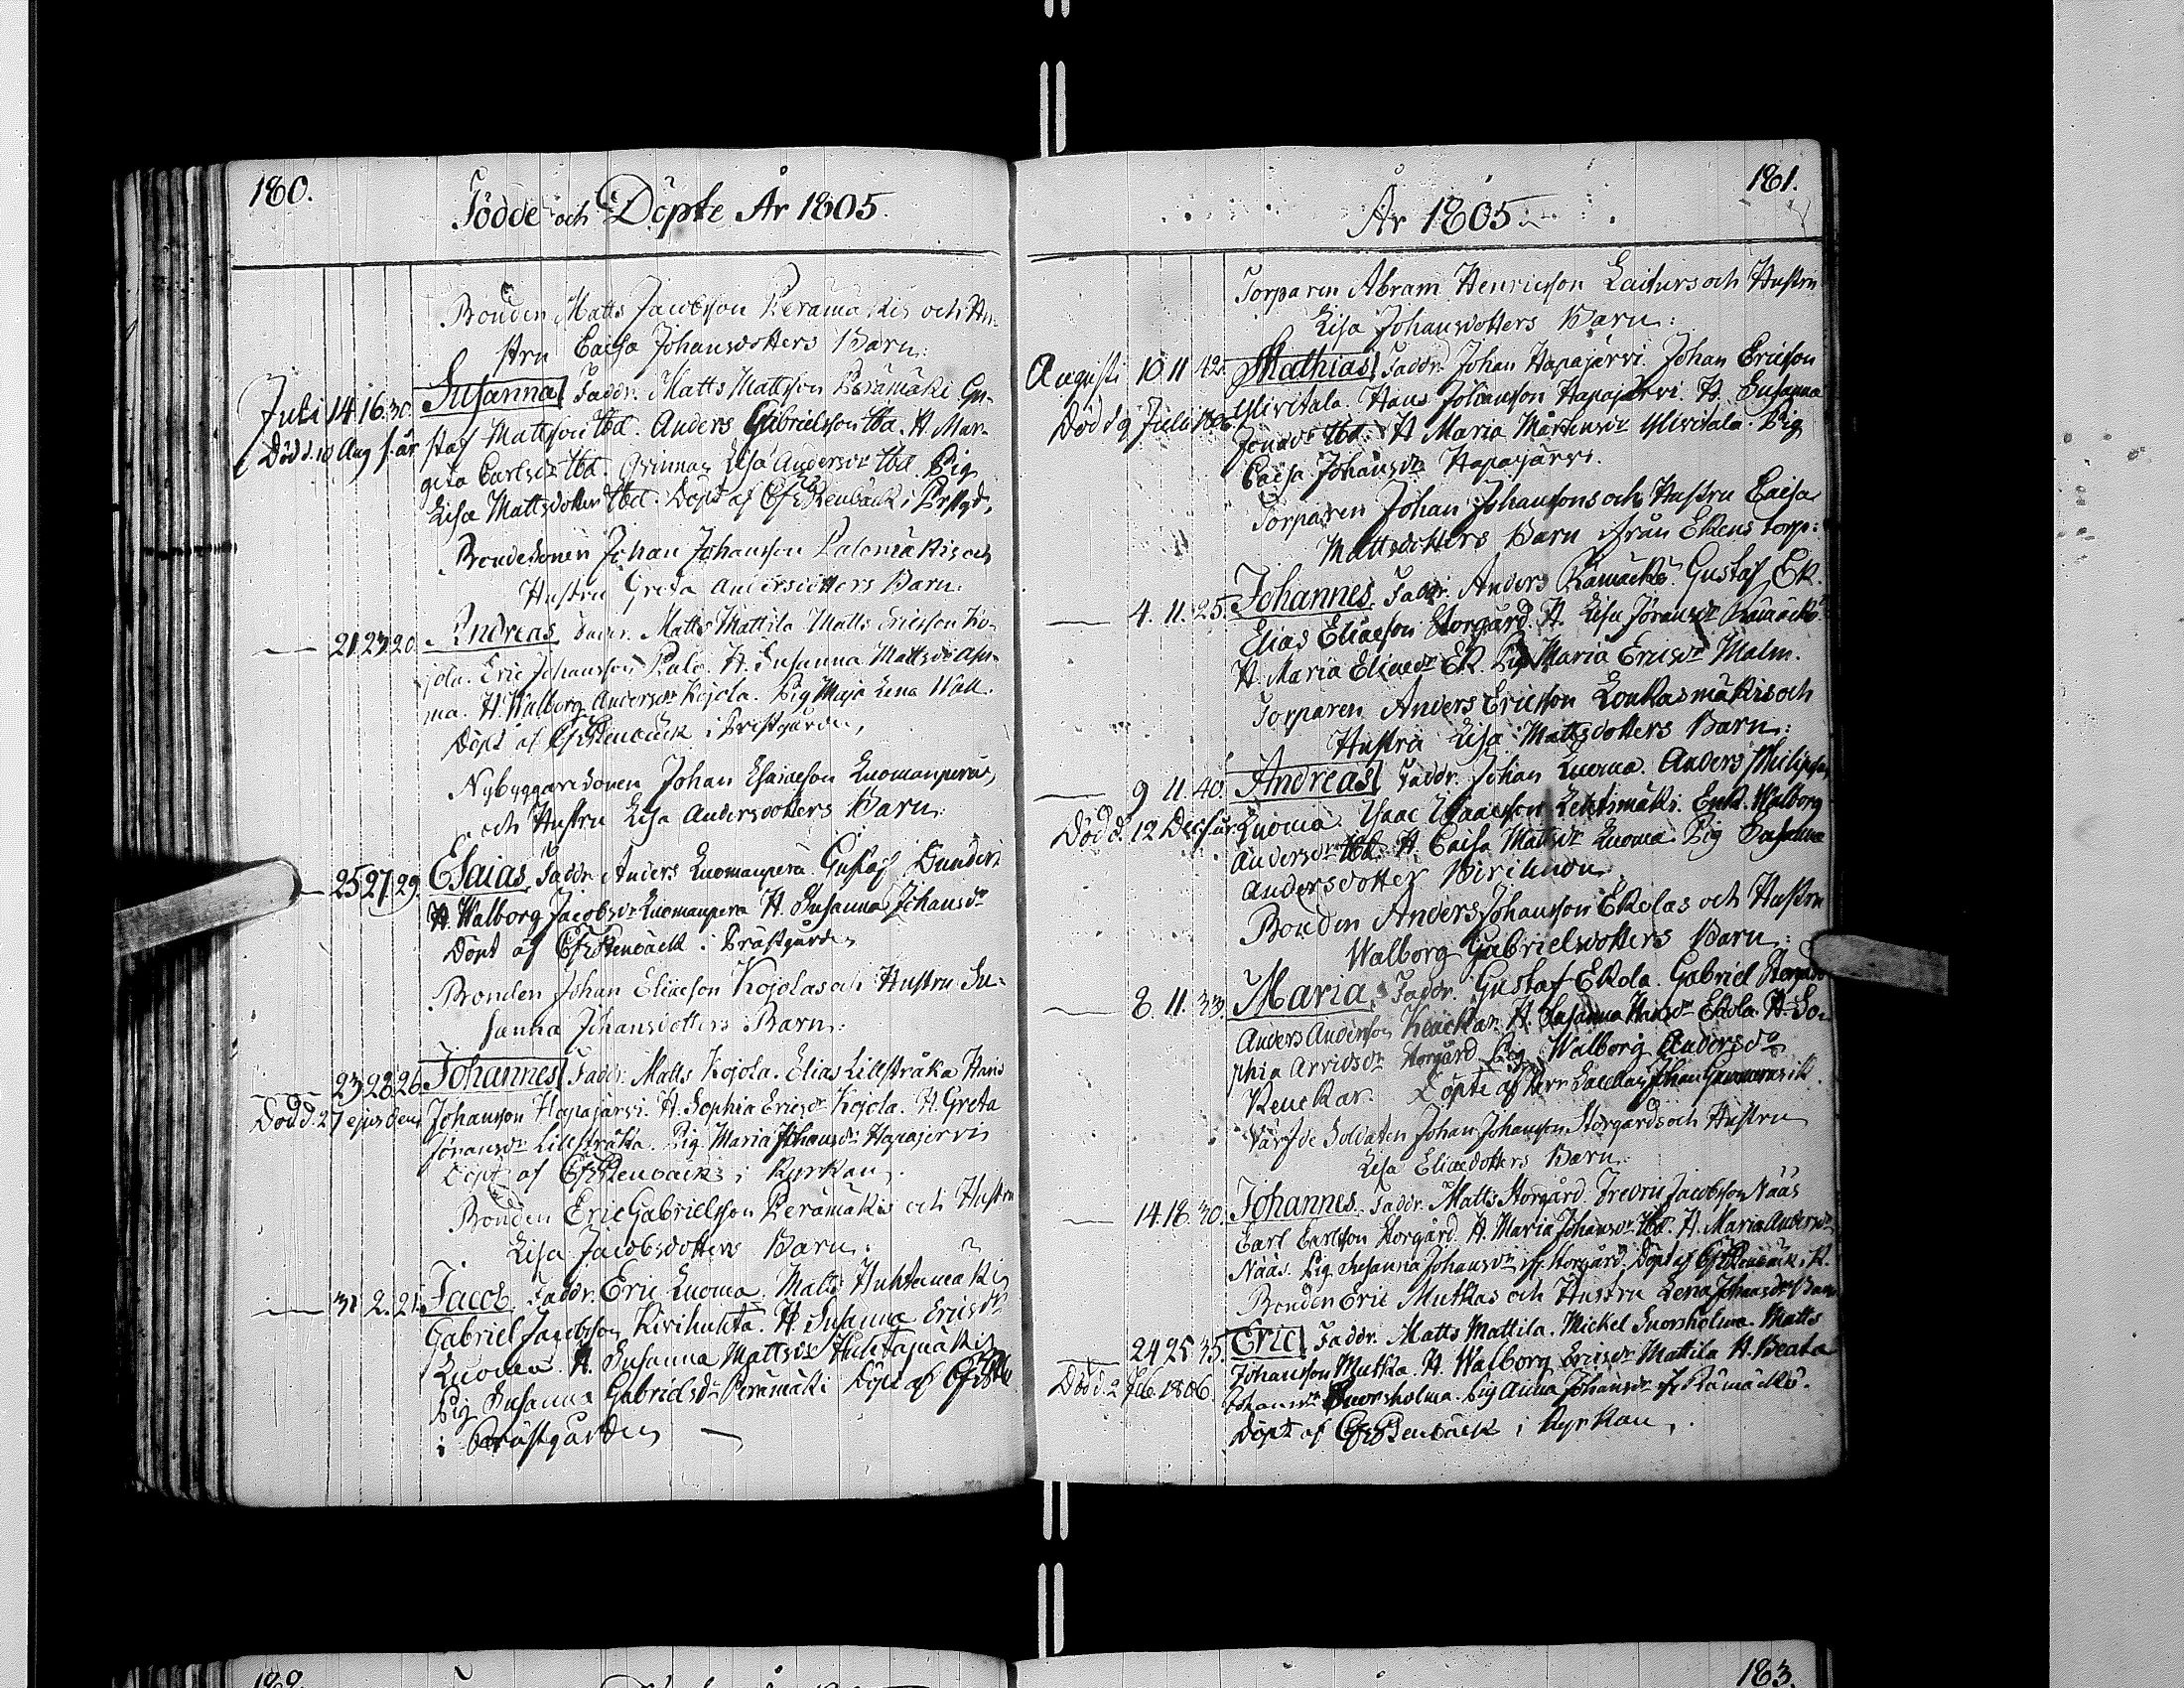 180.
Födde och Döpte År 1805.
Bonden Matts Jacobsson Perämäkis och Hu-
stru Caisa Johansdotters Barn:
Juli 14 16. 30. Susanna Faddr. Matts Mattsson Perämäki Gu-
Död d. 10 Aug s. år staf Mattsson Ibd. Anders Gabrielsson Ibd. H. Mar-
geta Carlsdr Ibd. Qvinnan Lisa Andersdr Ibd. Pig
Lisa Mattsdotter Ibd. Döpt af Stenbäck i Prstgd.
Bondesonen Johan Johansson Palomäkis och
Hustru Greta Andersdotters Barn.
21 23 20. Andreas Faddr. Matts Mattila Matts Ericsson Ko-
jola. Eric Johansson Palo. H. Susanna Mattsdr
ma. H. Walborg Andersdr Kojola. Pig Maja Lena Wall.
Döpt af Stenbäck i Prestgården,
Nybyggaresonen Johan Esaiaeson Luomanperäs,
och Hustru Lisa Andersdotters Barn:
25 27 29. Esaias. Faddr. Anders Luomanperä. Gustaf
H. Walborg Jacobsdr Luomanperä H. Susanna Johansdr
Döpt af Stenbäck i Prästgården
Bonden Johan Eliaeson Kojolas och Hustru Su-
sanna Johansdotters Barn:
23 28 26 Johannes Faddr. Matts Kojola. Elias Lillstråka Hans
Död d. 27 ejusdem Johansson Hapajärvi. H. Sophia Ericsdr Kojola. H. Greta
Jöransdr Lillstråka. Pig Maria Johansdr Hapajervi
Döpt af Stenbäck i Kyrkan.
Bonden Eric Gabrielsson Perämäkis och Hustru
Lisa Jacobsdotters Barn:
31 2. 21. Jacob Faddr. Eric Luoma. Matts Huhtamäki
Gabriel Jacobsson Kivihuhta. H. Susanna Ericsdr
Luoma. H. Susanna Mattsdr Huhtamäki
Pig Susanna Gabrielsdr Perämäki Döpt af
i Prästgården
181.
År 1805.
Torparen Abram Henricsson Laiturs och Hustru
Lisa Johansdotters Barn:
Augusti 10 11 42. Mathias Faddr. Johan Hapajärvi. Johan Ericsson
Död d 9 Juli Ylivitala. Hans Johansson Hapajärvi. H. Susanna
Jonadr Ibd. H Maria Mårtensdr Ylivitala. Pig
Caisa Johansdr Hapajärvi.
Torparen Johan Johanssons och Hustru Caisa
Mattsdotters Barn från Ekens torp:
4. 11. 25. Johannes. Faddr. Anders Rämäckö. Gustaf Ek.
Elias Eliaeson Storgård. H. Lisa Jöransdr Rämäckö.
H. Maria Eliaedr Ek. Pig Maria Ericsdr Malm.
Torparen Anders Ericsson Loukasmäkis och
Hustru Lisa Mattsdotters Barn:
9 11. 40. Andreas Faddr. Johan Luoma. Anders Philipsson
Död d. 12 Dec s. år. Luoma. Isaac Isaacsson Lehtimäki. Enk. Walborg
Andersdr Ibd. H. Caisa Mattsdr Luoma. Pig Susanna
Andersdotter
Bonden Anders Johansson Ekolas och Hustru
Walborg Gabrielsdotters Barn:
8. 11. 33. Maria. Faddr. Gustaf Ekola. Gabriel Storgård
Anders Andersson Keuckar. H. Susanna Hansdr Ekola. H. So-
phia Arvidsdr Storgård Pig Walborg Andersdr
Keuckar. Döpte af Herr
Soldaten Johan Johansson Storgårds och Hustru
Lisa Eliaedotters Barn.
14. 18. 30. Johannes. Faddr. Matts Storgård. Fredric Jacobsson Nääs
Carl Carlsson Storgård. H. Maria Johansdr Ibd. H. Maria Andersdr
Nääs. Pig Susanna Johansdr Storgård. Döpt af Stenbäck i K.
Bonden Eric Mutkas och Hustru Lena Johansdrs Barn
24 25 35. Eric Faddr. Matts Mattila. Mickel Snorsholma. Matts
Död d. 2 Feb. 1806. Johansson Mutka. H. Walborg Ericsdr Mattila H. Beata
Johansdr Snorsholma. Pig Anna Johansdr Rämäckö.
Döpt af Stenbäck i Kyrkan.
182.
183.